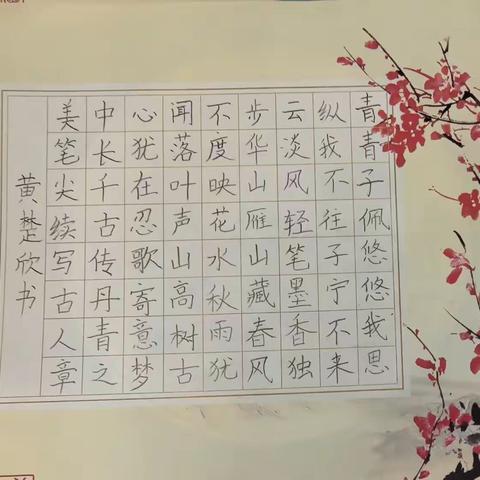 青青子佩悠悠我思
纵我不往子宁不来
云淡风轻笔墨香独
步华山雁山藏春风
不度映花水秋雨犹
闻落叶声山高树古
心犹在忍歌寄意梦
中长千古传丹青之
美笔尖续写古人章
黄楚欣书